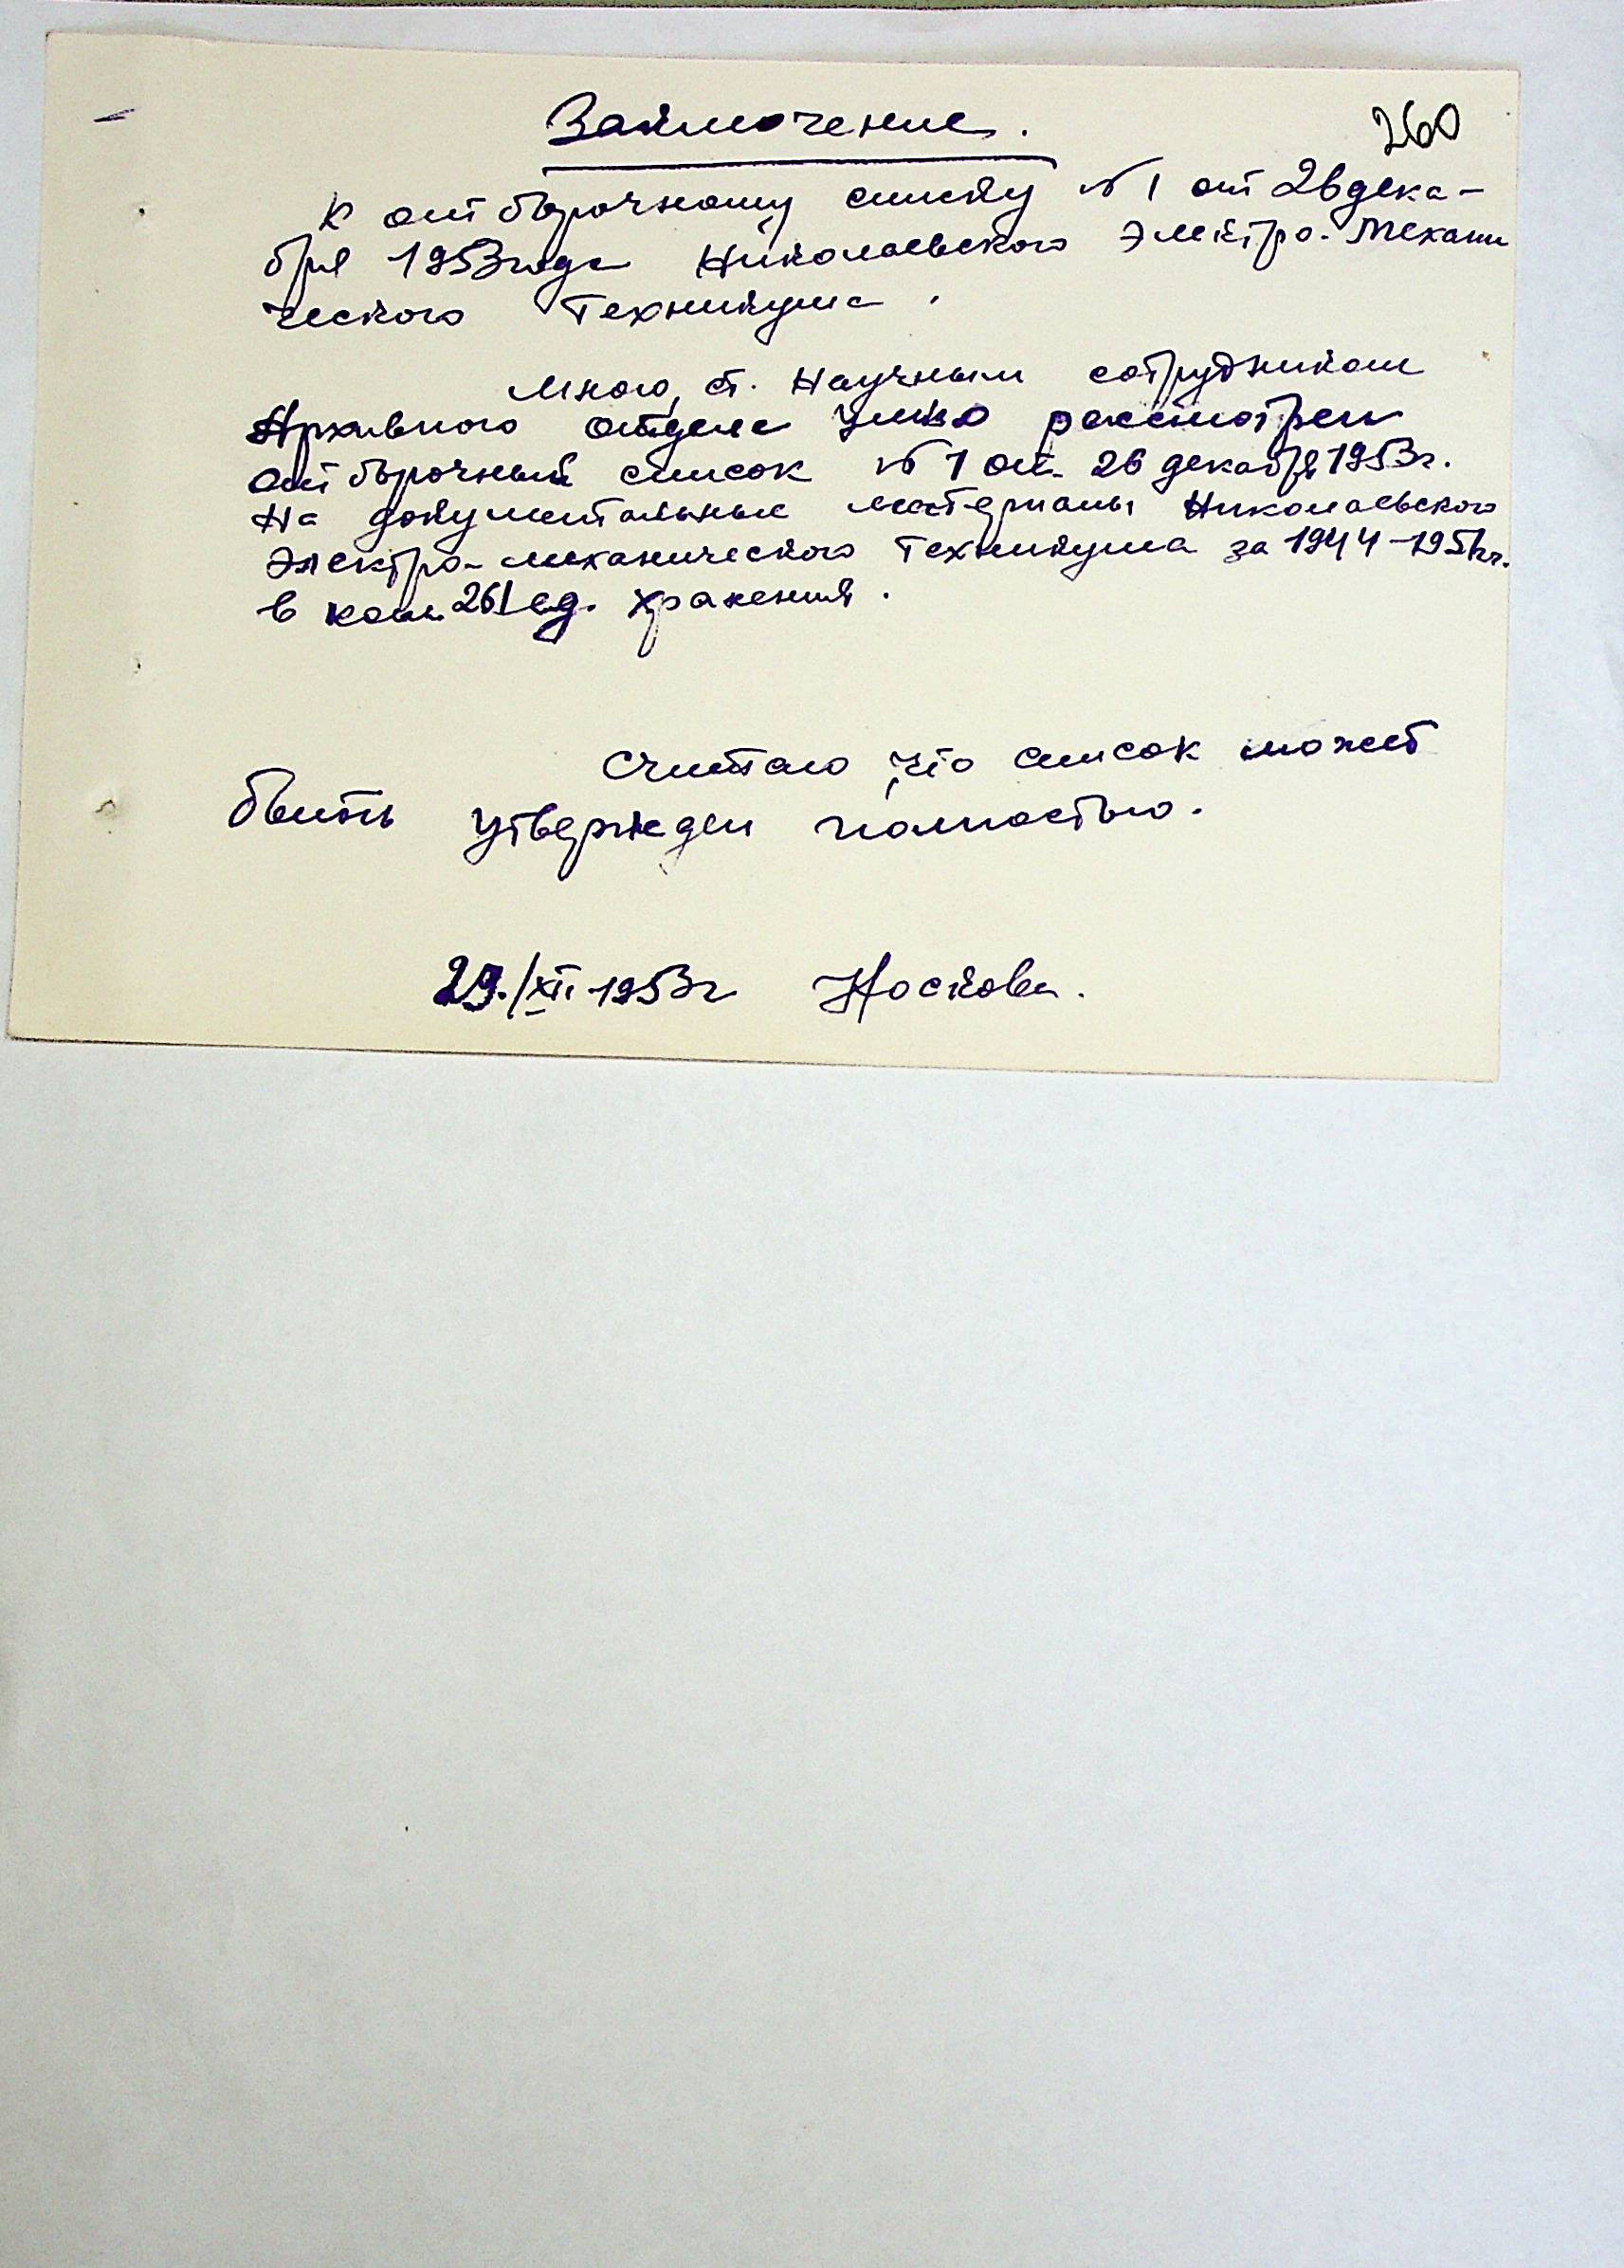 260
Заключение.
К отборочному списку № 1 от 26 дека-
бря 1953 года Николаевского Электро-Механи
ческого Техникума.
Мною, ст. Научным сотрудником
Архивного отдела УМВД рассмотрен
отборочный список № 1 от 26 декабря 1953г.
На документальные материалы Николаевского
Электро-механического Техникума за 1944-1951гг.
в кол. 261 ед. хранения.
Считаю, что список может
быть утвержден полностью.
29./XII-1953г Носкова.